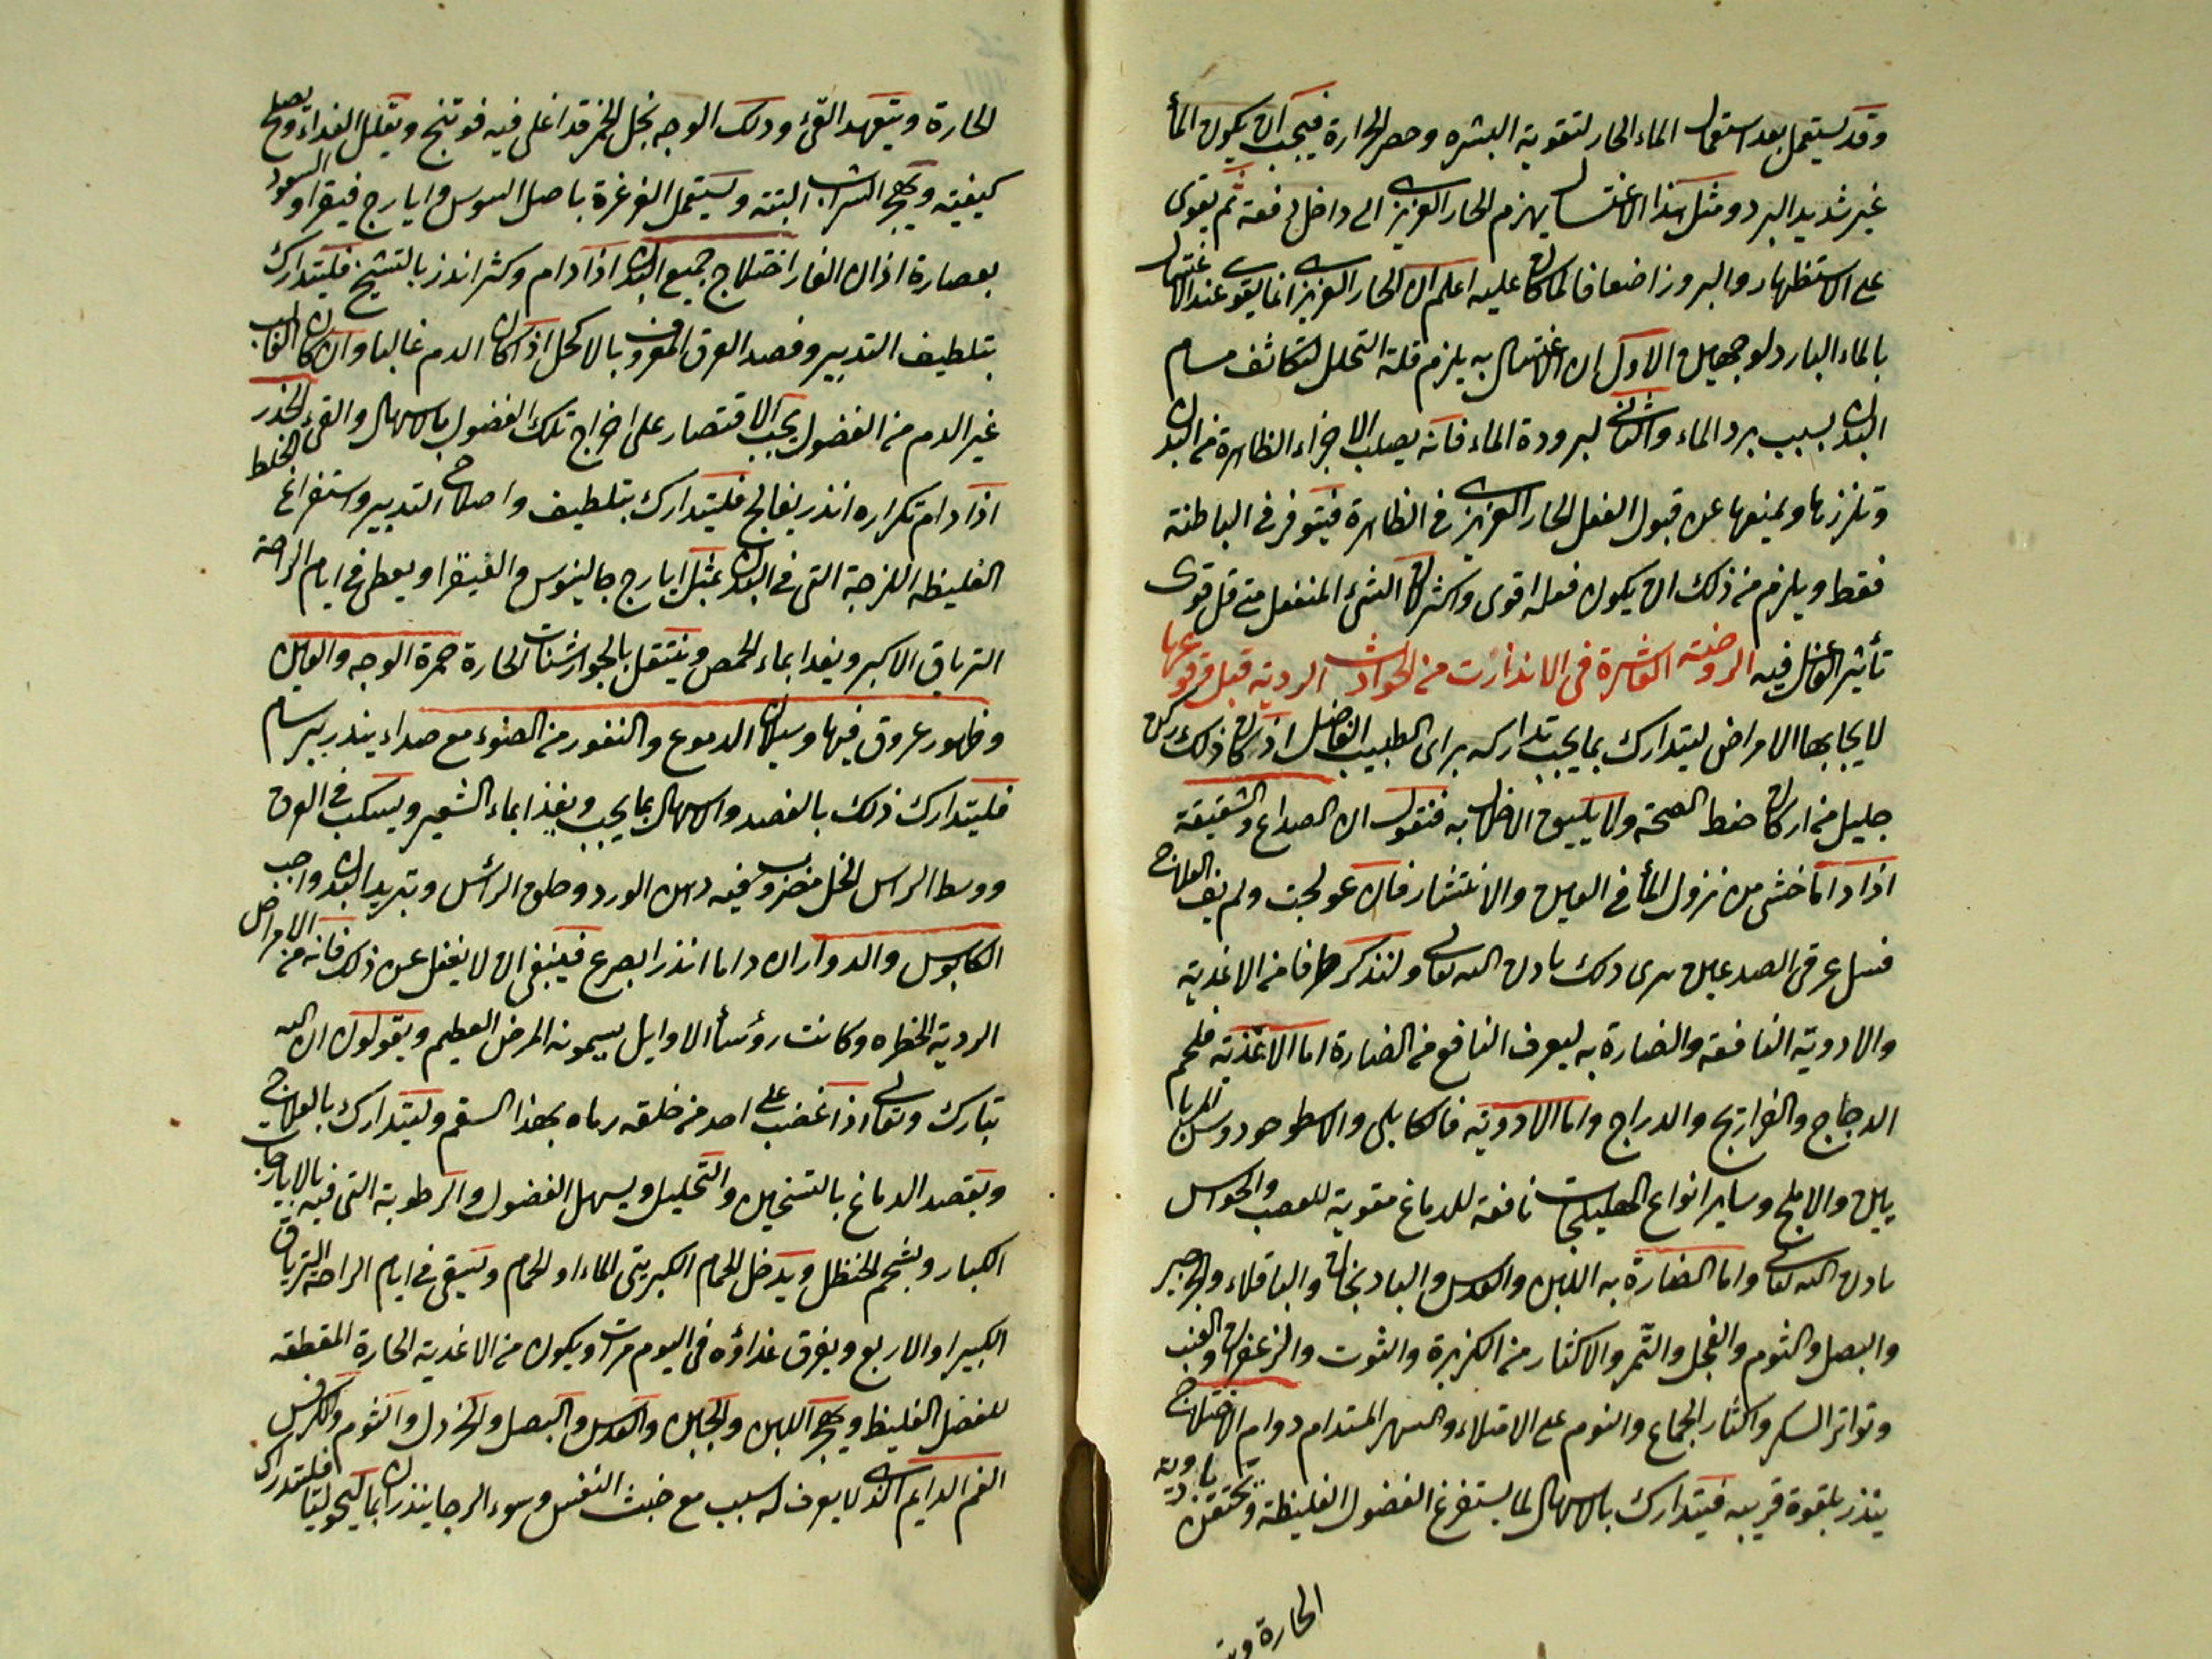 وقد يستعمل بعد استعمال الماء الحار لتقوية البشرة وحصر الحرارة فيجب ان يكون الماء
غير شديد البرد ومثل هذا الاغتسال يهزم الحار الغريزي الى داخل دفعة ثم يقوى
على الاستظهار والبروز اضعافا لما كان عليه اعلم ان الحار الغريزي انما يقوى عند الاغتسال
بالماء البارد لوجهين الاول ان الاغتسال به يلزم قلة التحلل لتكاثف مسام
البدن بسبب برد الماء والثاني لبرودة الماء فانه يصلب الاجزاء الظاهرة من البدن
وتلززها ويمنعها عن قبول الفعل الحار الغريزي في الظاهرة فيتوفر في الباطنة
فقط ويلزم من ذلك ان يكون فعله اقوى واكثر لان الشئ المنفعل متى قل قوى
تأثير الفاعل فيه الروضة العاشرة في الانذارات من الحوادث الردية قبل وقوعها
لايجابها الامراض ليتدارك بما يجب تداركه براى الطبيب الفاضل اذ كان ذلك ركن
جليل من اركان حفظ الصحة ولا يليق الاخلال به فنقول ان الصداع والشقيقة
اذا داما خشى من نزول الماء في العين والانتشار فان عولجت ولم يف العلاج
فسل عرقى الصدغين برى ذلك باذن الله تعالى ولنذكر طرفا من الاغذية
والادوية النافعة والضارة به ليعرف النافع من الضارة اما الاغذية فلحم
الدجاج والفراريج والدراج واما الادوية فالكابلي والاسطوخودوس
والاملج وساير انواع الهليلجات نافعة للدماغ مقوية للعصب والحواس
باذن الله تعالى واما الضارة به اللبن والعدس والبادنجان والباقلاء والجرجير
والبصل والثوم والفجل والتمر والاكثار من الكزبرة والتوت والزعفران والعنب
وتواتر السكر واكثار الجماع والنوم على الامتلاء والسهر المستدام دوام الاختلاج
ينذر بلقوة قريبه فيتدارك بالاسهال لما يستفرغ الفضول الغليظة ويحتقن بادوية
الحارة ويتـ
الحارة ويتعهد القئ ودلك الوجه بخل الخمر قد اغلى فيه فوتنج ويقلل الغداء ويصلح
كيفيته ويهجر الشراب البتة ويستعمل الغرغرة باصل السوس و ايارج فيقرا والسعود
بعصارة اذان الفار اختلاج جميع البدن اذا دام وكثر انذر بالتشنج فليتدارك
بتلطيف التدبير وفصد العرق المعروف بالاكحل اذا كان الدم غالبا وان كان الغالب
غير الدم من الفضول يجب الاقتصار على اخراج تلك الفضول بالاسهال والقئ الخدر
اذا دام تكراره انذر بفالج فليتدارك بتلطيف واصلاح التدبير واستفراغ الخلط
الغليظه اللزجة التي في البدن بمثل ايارج جالينوس والفيقرا ويعطى في ايام الراحة
الترياق الاكبر ويغدا بماء الحمص وينتقل بالجوارشنات الحارة حمرة الوجه والعين
وظهور عروق فيها وسيلان الدموع والنفور من الضوء مع صداع ينذر ببرسام
فليتدارك ذلك بالفصد والاسهال بما يجب ويغذا بماء الشعير ويسكب في العرق
ووسط الراس الخل مضروب فيه دهن الورد وحلق الرأس وتبريد البدن واجب
الكابوس والدوار ان داما انذرا بصرع فينبغي ان لا يغفل عن ذلك فانه من الامراض
الردية الخطره وكانت رؤسأ الاوايل يسمونه المرض العظيم ويقولون ان الله
تبارك وتعالى اذا غضب على احد من خلقه رماه بهذا السقم وليتدارك بالعلاج
ويقصد الدماغ بالتسخين والتحليل ويسهل الفضول والرطوبة التي فيه بالايارجات
الكبار وبشحم الحنظل ويدخل الحمام الكبريتى الماء او الحمام ويسقى في ايام الراحة الترياق
الكبير او الاربع ويفرق غداؤه في اليوم مرات ويكون من الاغدية الحارة المقطعه
للفضل الغليظ ويهجر اللبن والجبن والعدس والبصل والخردل والثوم والكرفس
الغم الدايم الذي لا يعرف له سبب مع خبث النفس وسوء الرجا ينذران بماليخوليا فليتدارك